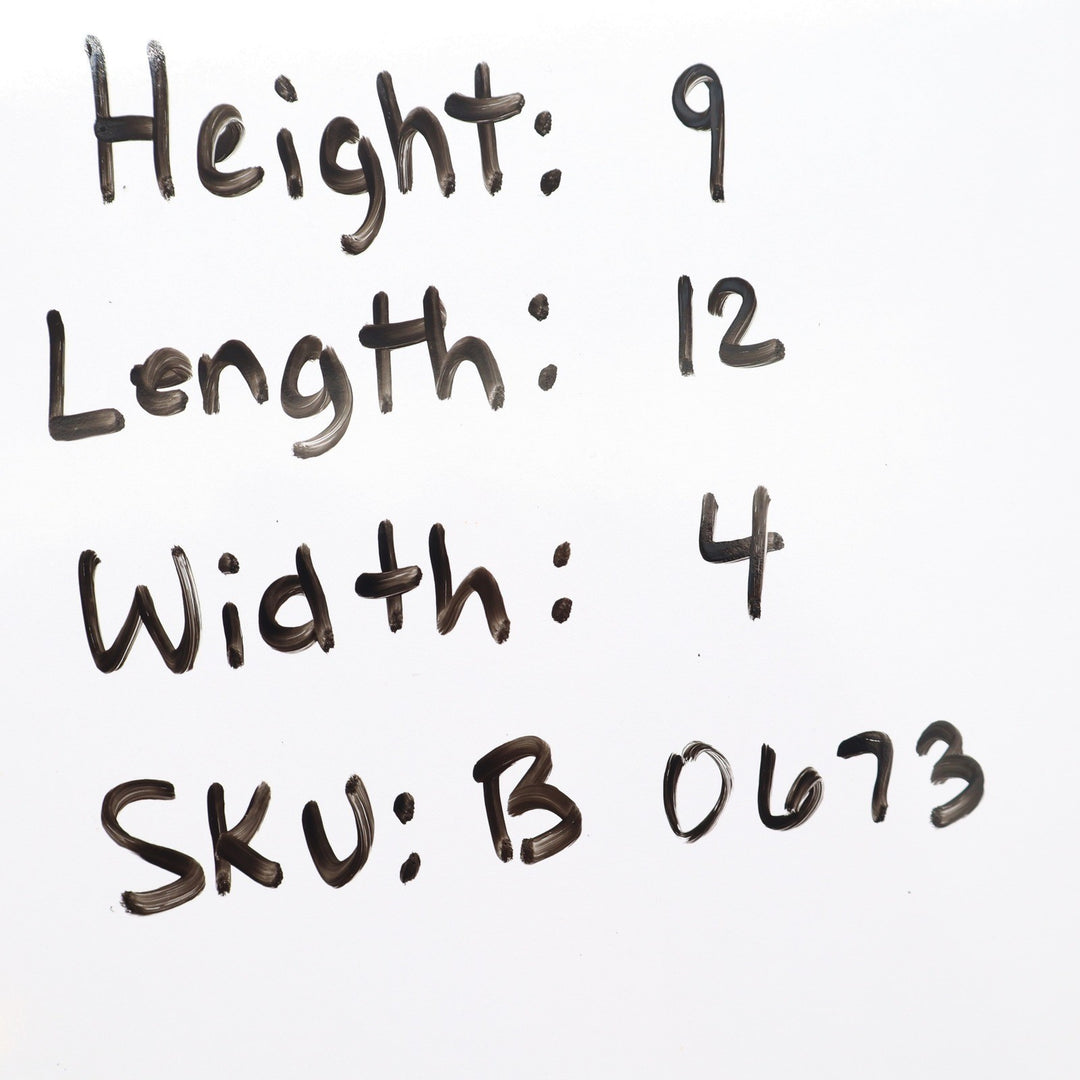 Height: 9
Length: 12
Width: 4
SKU: B 0673